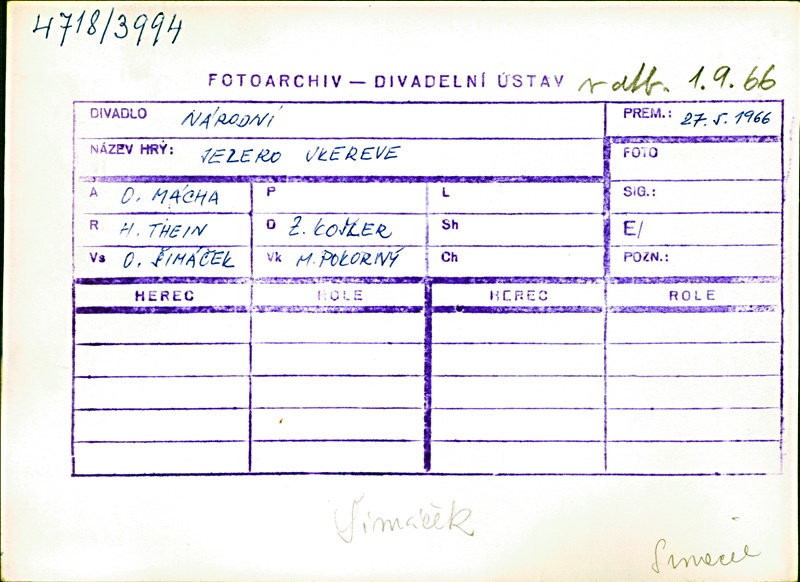 4718/3994
FOTOARCHIV — DIVADELNÍ ÚSTAV 1.9.66
DIVADLO NÁRODNÍ PREM.: 27. 5. 1966
NÁZEV HRY: JEZERO UKEREVE FOTO
A O. MÁCHA P L SIG.:
R H. THEIN D Z. KOŠLER Sh E/
Vs O. ŠIMÁČEK Vk M. POKORNÝ Ch POZN.:
HEREC ROLE HEREC ROLE
Šimáček